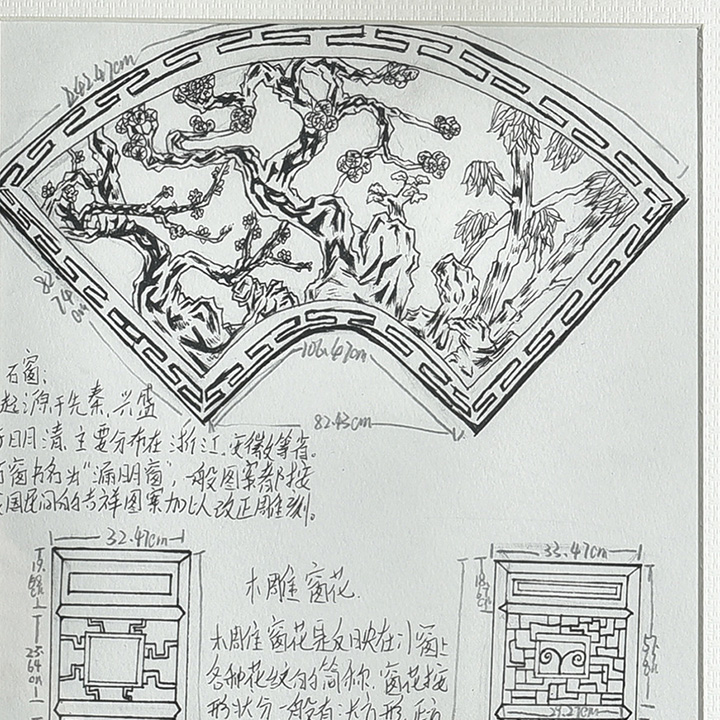 242.47cm
82.74cm
106.47cm
82.43cm
石窗:
起源于先秦,兴盛
于明清,主要分布在浙江、安徽等省。
石窗书名出"漏明窗",一般图案都接
民间的吉祥图案加以改正雕刻。
32.47cm
33.47cm
木雕窗花.
木雕窗花是反映在门窗上
各种花纹的简称.窗花按
形状分一般有:长方形.正方
25.64cm
21.27cm